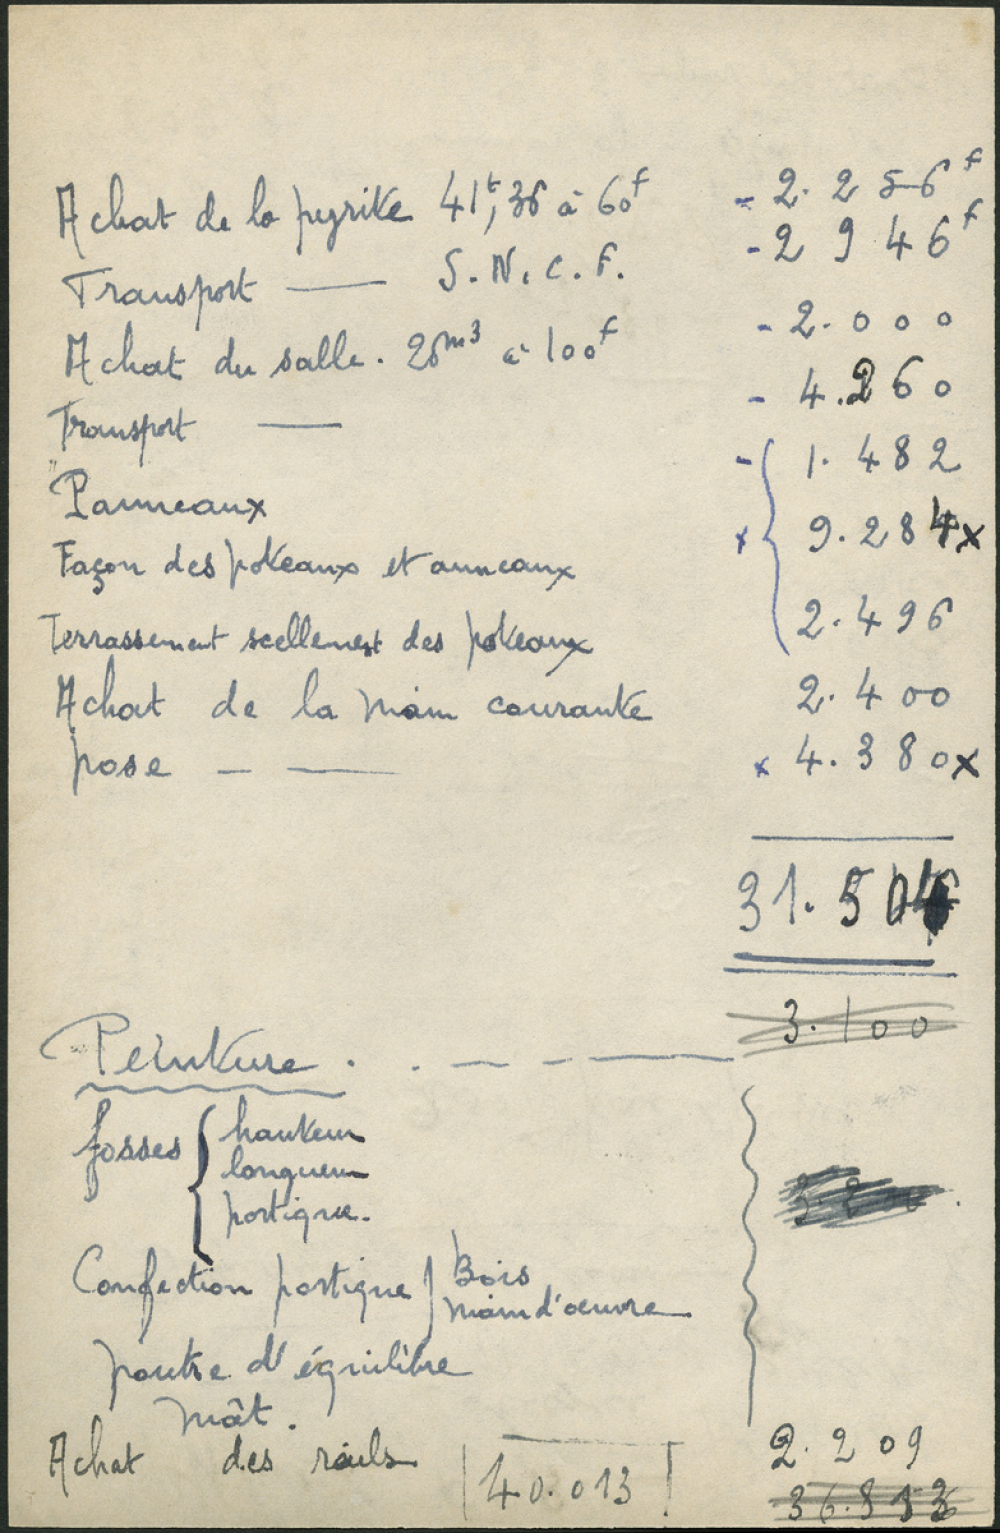 Achat de la pyrite 41t,36 à 60f - 2.256f
Transport — S.N.C.F. - 2946f
Achat du salle. 20m3 à 100f - 2.000
Transport — - 4.260
Panneaux - 1.482
Façon des poteaux et anneaux x 9.284x
Terrassement scellement des poteaux 2.496
Achat de la main courante 2.400
pose — — x 4.380x
31.504
Peinture . . — — — 3.100
fosses { hauteur
longueur
portique.
Confection portique } Bois
main d'oeuvre
poutre d'équilibre
mât.
Achat des rails 2.209
40.013